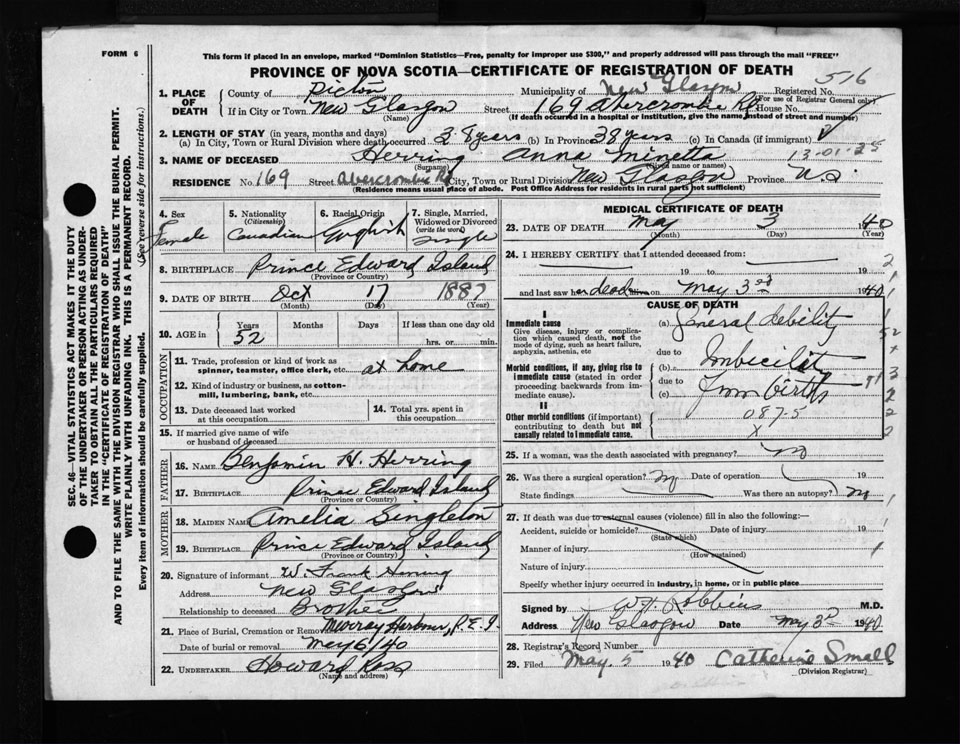 FORM 6
This form if placed in an envelope, marked "Dominion Statistics—Free, penalty for improper use $300," and properly addressed will pass through the mail "FREE"
PROVINCE OF NOVA SCOTIA—CERTIFICATE OF REGISTRATION OF DEATH
516
1. PLACE OF DEATH
County of Pictou Municipality of New Glasgow Registered No.
(For use of Registrar General only)
If in City or Town New Glasgow Street 169 Abercrombie Rd House No.
(Name) (If death occurred in a hospital or institution, give the name instead of street and number)
2. LENGTH OF STAY (in years, months and days)
(a) In City, Town or Rural Division where death occurred 38 years (b) In Province 38 years (c) In Canada (if immigrant)
13-01-25
3. NAME OF DECEASED Herring Anna Minetta
(Surname) (Given name or names)
RESIDENCE No. 169 Street Abercrombie Rd City, Town or Rural Division New Glasgow Province N.S.
(Residence means usual place of abode. Post Office Address for residents in rural parts not sufficient)
4. Sex Female
5. Nationality (Citizenship) Canadian
6. Racial Origin English
7. Single, Married, Widowed or Divorced (write the word) Single
8. BIRTHPLACE Prince Edward Island
(Province or Country)
9. DATE OF BIRTH Oct 17 1887
(Month) (Day) (Year)
10. AGE in Years Months Days If less than one day
52 hrs. or min.
OCCUPATION
11. Trade, profession or kind of work as spinner, teamster, office clerk, etc. at home
12. Kind of industry or business, as cotton-mill, lumbering, bank, etc.
13. Date deceased last worked at this occupation
14. Total yrs. spent in this occupation
15. If married give name of wife or husband of deceased
FATHER
16. NAME Benjamin H. Herring
17. BIRTHPLACE Prince Edward Island
(Province or Country)
MOTHER
18. MAIDEN NAME Amelia Singleton
19. BIRTHPLACE Prince Edward Island
(Province or Country)
20. Signature of informant W. Frank Herring
Address New Glasgow
Relationship to deceased Brother
21. Place of Burial, Cremation or Removal Murray Harbour, P.E.I.
Date of burial or removal May 6/40
22. UNDERTAKER Howard Ross
(Name and address)
MEDICAL CERTIFICATE OF DEATH
23. DATE OF DEATH May 3 1940
(Month) (Day) (Year)
24. I HEREBY CERTIFY that I attended deceased from:
19 to 19
and last saw her dead alive on May 3rd 1940
CAUSE OF DEATH
I
Immediate cause
Give disease, injury or complication which caused death, not the mode of dying, such as heart failure, asphyxia, asthenia, etc
(a) General debility
due to
Morbid conditions, if any, giving rise to immediate cause (stated in order proceeding backwards from immediate cause).
(b) Imbecility
due to
(c) from birth
II
Other morbid conditions (if important) contributing to death but not causally related to immediate cause.
087-5
X
25. If a woman, was the death associated with pregnancy? no
26. Was there a surgical operation? no Date of operation 19
State findings Was there an autopsy? no
27. If death was due to external causes (violence) fill in also the following:—
Accident, suicide or homicide? Date of injury 19
(State which)
Manner of injury
(How sustained)
Nature of injury
Specify whether injury occurred in industry, in home, or in public place
Signed by W.H. Robbins M.D.
Address New Glasgow Date May 3rd 1940
28. Registrar's Record Number
29. Filed May 5 1940 Catherine Small
(Division Registrar)
SEC. 46—VITAL STATISTICS ACT MAKES IT THE DUTY OF THE UNDERTAKER OR PERSON ACTING AS UNDERTAKER TO OBTAIN ALL THE PARTICULARS REQUIRED IN THE "CERTIFICATE OF REGISTRATION OF DEATH" AND TO FILE THE SAME WITH THE DIVISION REGISTRAR WHO SHALL ISSUE THE BURIAL PERMIT.
WRITE PLAINLY WITH UNFADING INK. THIS IS A PERMANENT RECORD.
Every item of information should be carefully supplied. (See reverse side for instructions.)